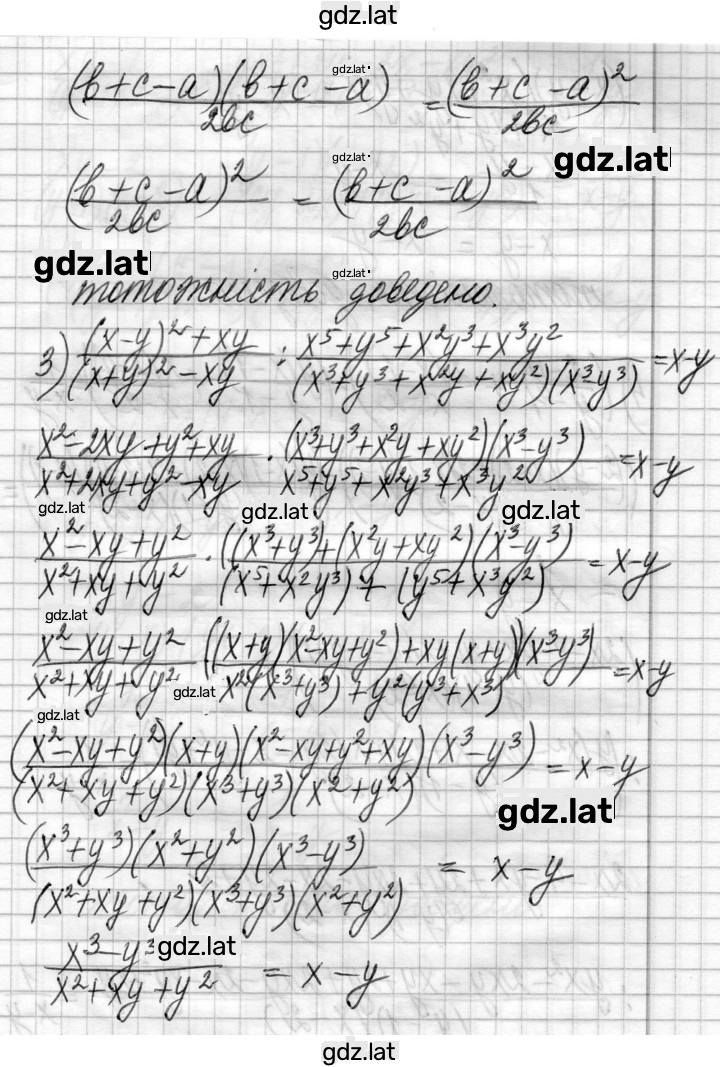 gdz.lat
(b+c-a)(b+c-a)/2bc = (b+c-a)²/2bc
gdz.lat
(b+c-a)²/2bc = (b+c-a)²/2bc
gdz.lat
gdz.lat
gdz.lat
тотожність доведено.
gdz.lat
3) ((x-y)²+xy)/((x+y)²-xy) : (x⁵+y⁵+x²y³+x³y²)/((x³+y³+x²y+xy²)(x³-y³)) = x-y
(x²-2xy+y²+xy)/(x²+2xy+y²-xy) · ((x³+y³+x²y+xy²)(x³-y³))/(x⁵+y⁵+x²y³+x³y²) = x-y
gdz.lat gdz.lat gdz.lat
(x²-xy+y²)/(x²+xy+y²) · ((x³+y³)+(x²y+xy²)(x³-y³))/((x⁵+x²y³)+(y⁵+x³y²)) = x-y
gdz.lat
(x²-xy+y²)/(x²+xy+y²) ((x+y)(x²-xy+y²)+xy(x+y))(x³-y³)/(x²(x³+y³)+y²(y³+x³)) = x-y
gdz.lat
gdz.lat
(x²-xy+y²)(x+y)(x²-xy+y²+xy)(x³-y³)/(x²+xy+y²)(x³+y³)(x²+y²) = x-y
gdz.lat
(x³+y³)(x²+y²)(x³-y³)/(x²+xy+y²)(x³+y³)(x²+y²) = x-y
gdz.lat
(x³-y³)/(x²+xy+y²) = x-y
gdz.lat